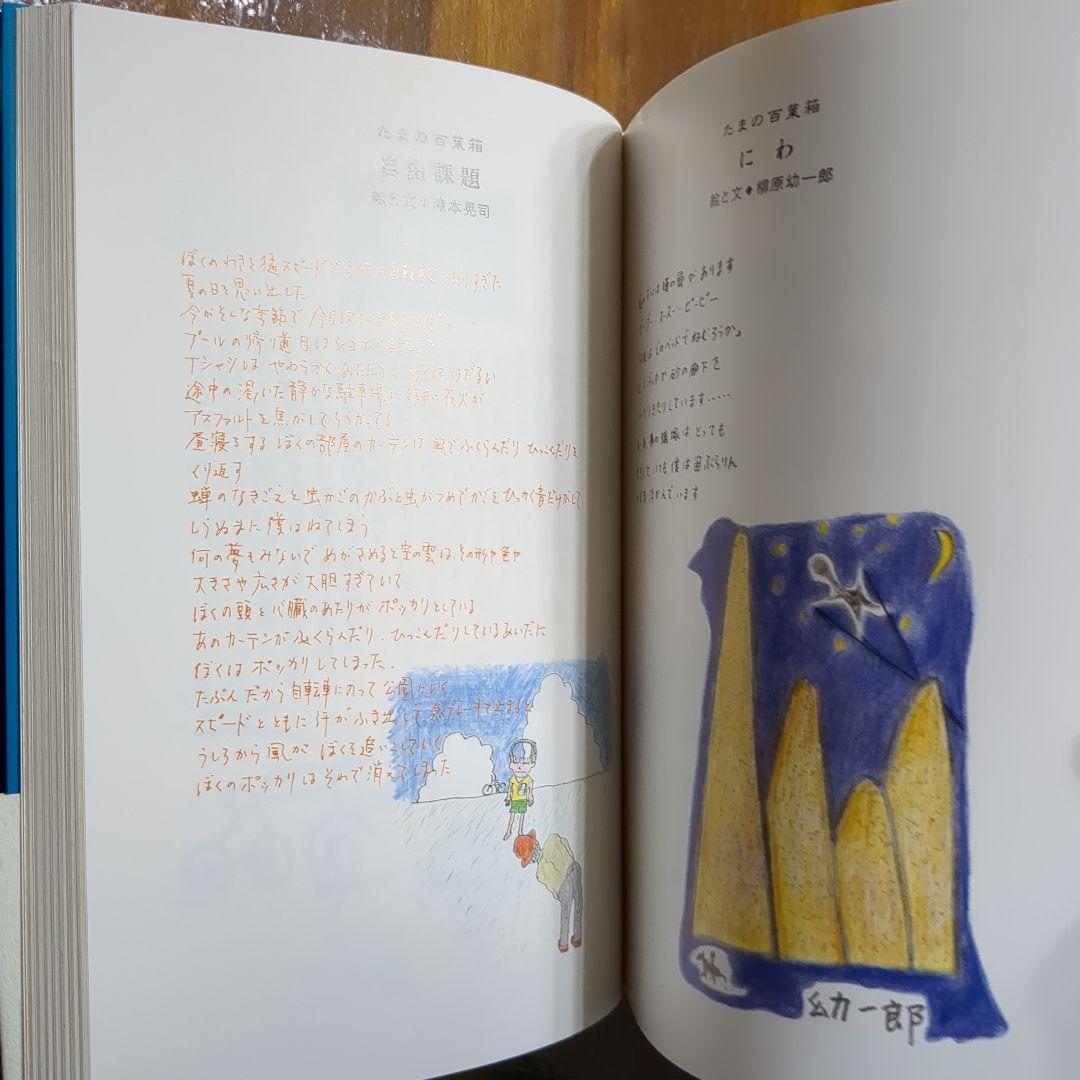 たまの百葉箱
自由課題
絵と文◆滝本晃司
ぼくのわきを猛スピードで自転車がすぎた
夏の日を思い出した
今がそんな季節で 今日は
プールの帰り道 目はショボショボ
Tシャツは やわらかく ぼくは けだるい
途中の渇いた静かな駐車場に 花火が
アスファルトを焦がしてちらかってる
昼寝をする ぼくの部屋のカーテンは 風でふくらんだり ひっこんだりを
くり返す
蝉のなきごえと虫かごのかぶと虫がつめでかごをひっかく音だけがして
しらぬまに 僕はねてしまう
何の夢もみないで めがさめると空の雲は その形や色や
大きさや広さが 大胆すぎていて
ぼくの頭と心臓のあたりが ポッカリとしている
あのカーテンが ふくらんだり、ひっこんだりしているあいだに
ぼくは ポッカリしてしまった.
たぶん だから 自転車にのって 公園にいく
スピードとともに 汗が ふき出して 急ブレーキで止まると
うしろから 風が ぼくを追いこしていく
ぼくのポッカリは それで 消えてしまった
たまの百葉箱
にわ
絵と文◆柳原幼一郎
があります
スースー・ピーピー
このベッドでねむろうか」
で 砂の廊下を
きたりしています……
はとっても
いつも僕は宙ぶらりん
浮かんでいます
幼一郎